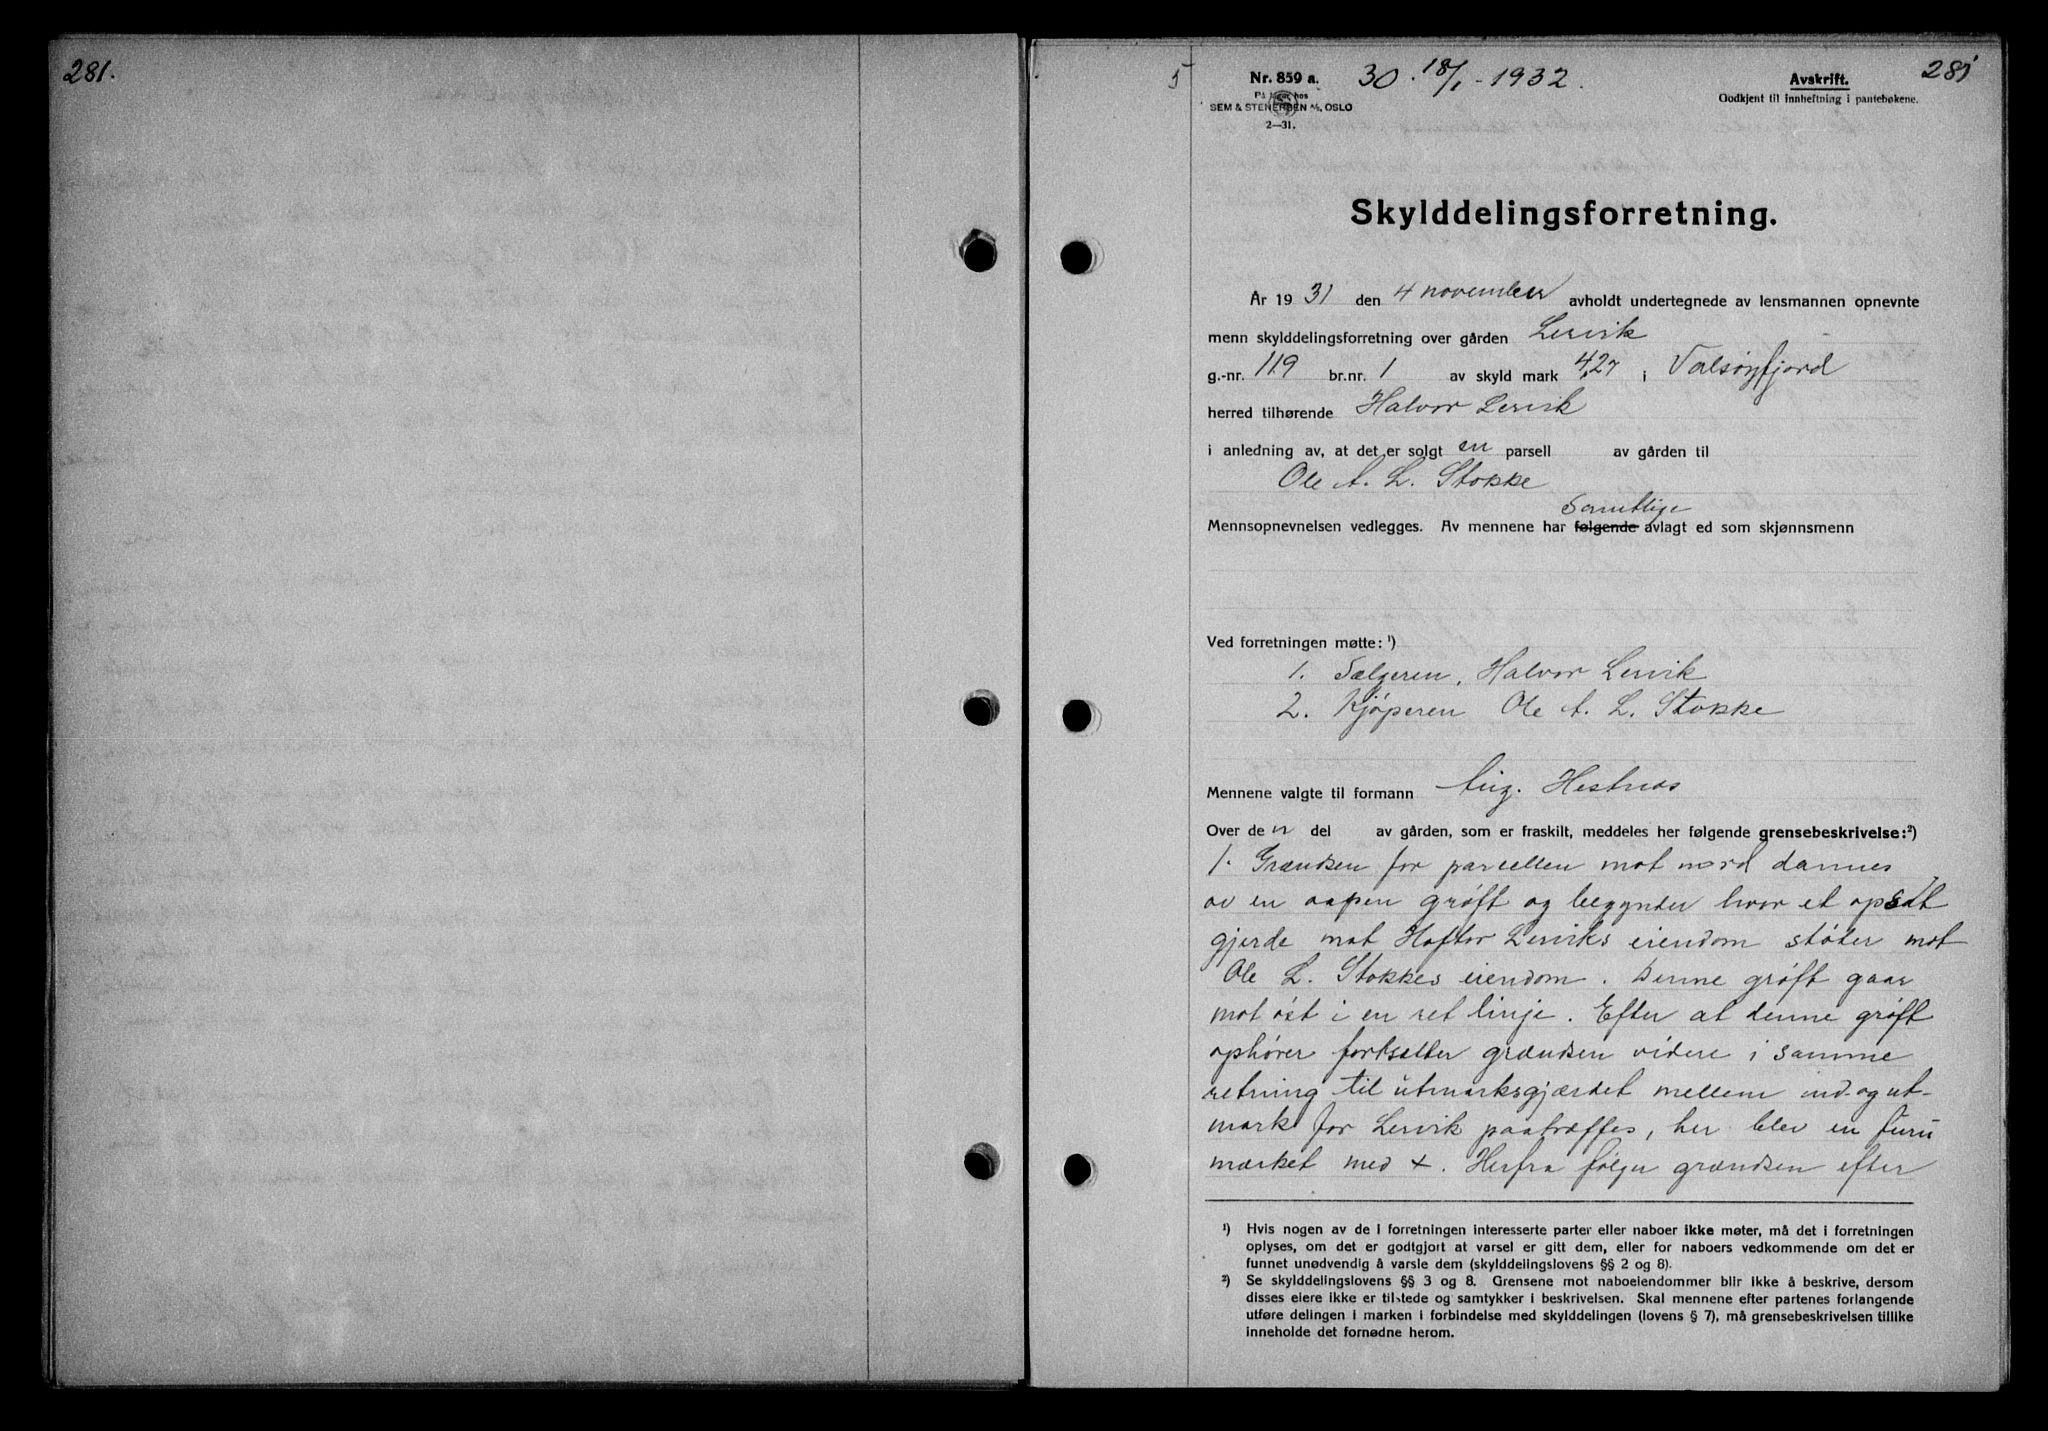 281.
5
Nr. 859 a.
På lager hos
SEM & STENERSEN A/S, OSLO
2—31.
30. 18/1 - 1932.
Avskrift.
Godkjent til innheftning i pantebøkene.
281
Skylddelingsforretning.
År 1931 den 4 november avholdt undertegnede av lensmannen opnevnte
menn skylddelingsforretning over gården Lervik
g.-nr. 119 br.nr. 1 av skyld mark 4,27 i Valsøyfjord
herred tilhørende Halvor Lervik
i anledning av, at det er solgt en parsell av gården til
Ole A. L. Stokke
Samtlige
Mennsopnevnelsen vedlegges. Av mennene har følgende avlagt ed som skjønnsmenn
Ved forretningen møtte: ¹)
1. Sælgeren, Halvor Lervik
2. Kjøperen Ole A. L. Stokke
Mennene valgte til formann Aug. Hestnes
Over den del av gården, som er fraskilt, meddeles her følgende grensebeskrivelse: ²)
1. Grændsen for parcellen mot nord dannes
av en aapen grøft og begynder hvor et opsat
gjerde mot Hoftor Lerviks eiendom støter mot
Ole L. Stokkes eiendom. Denne grøft gaar
mot øst i en ret linje. Efter at denne grøft
ophører fortsætter grændsen videre i samme
retning til utmarksgjærdet mellem ind- og ut-
mark for Lervik paatræffes, her blev en furu
mærket med +. Herfra følger grændsen efter
¹) Hvis nogen av de i forretningen interesserte parter eller naboer ikke møter, må det i forretningen
oplyses, om det er godtgjort at varsel er gitt dem, eller for naboers vedkommende om det er
funnet unødvendig å varsle dem (skylddelingslovens §§ 2 og 8).
²) Se skylddelingslovens §§ 3 og 8. Grensene mot naboeiendommer blir ikke å beskrive, dersom
disses eiere ikke er tilstede og samtykker i beskrivelsen. Skal mennene efter partenes forlangende
utføre delingen i marken i forbindelse med skylddelingen (lovens § 7), må grensebeskrivelsen tillike
inneholde det fornødne herom.